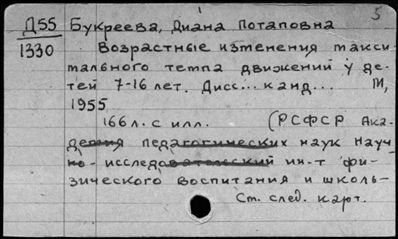 5
Д55 Букреева, Диана Потаповна
1330 Возрастные изменения макси-
мального темпа движений у де-
тей 7-16 лет. Дисс... канд... М,
1955
166 л. с илл. (РСФСР Ака-
демия педагогических наук Науч-
но-исследовательский ин-т фи-
зического воспитания и школь-
См. след. карт.